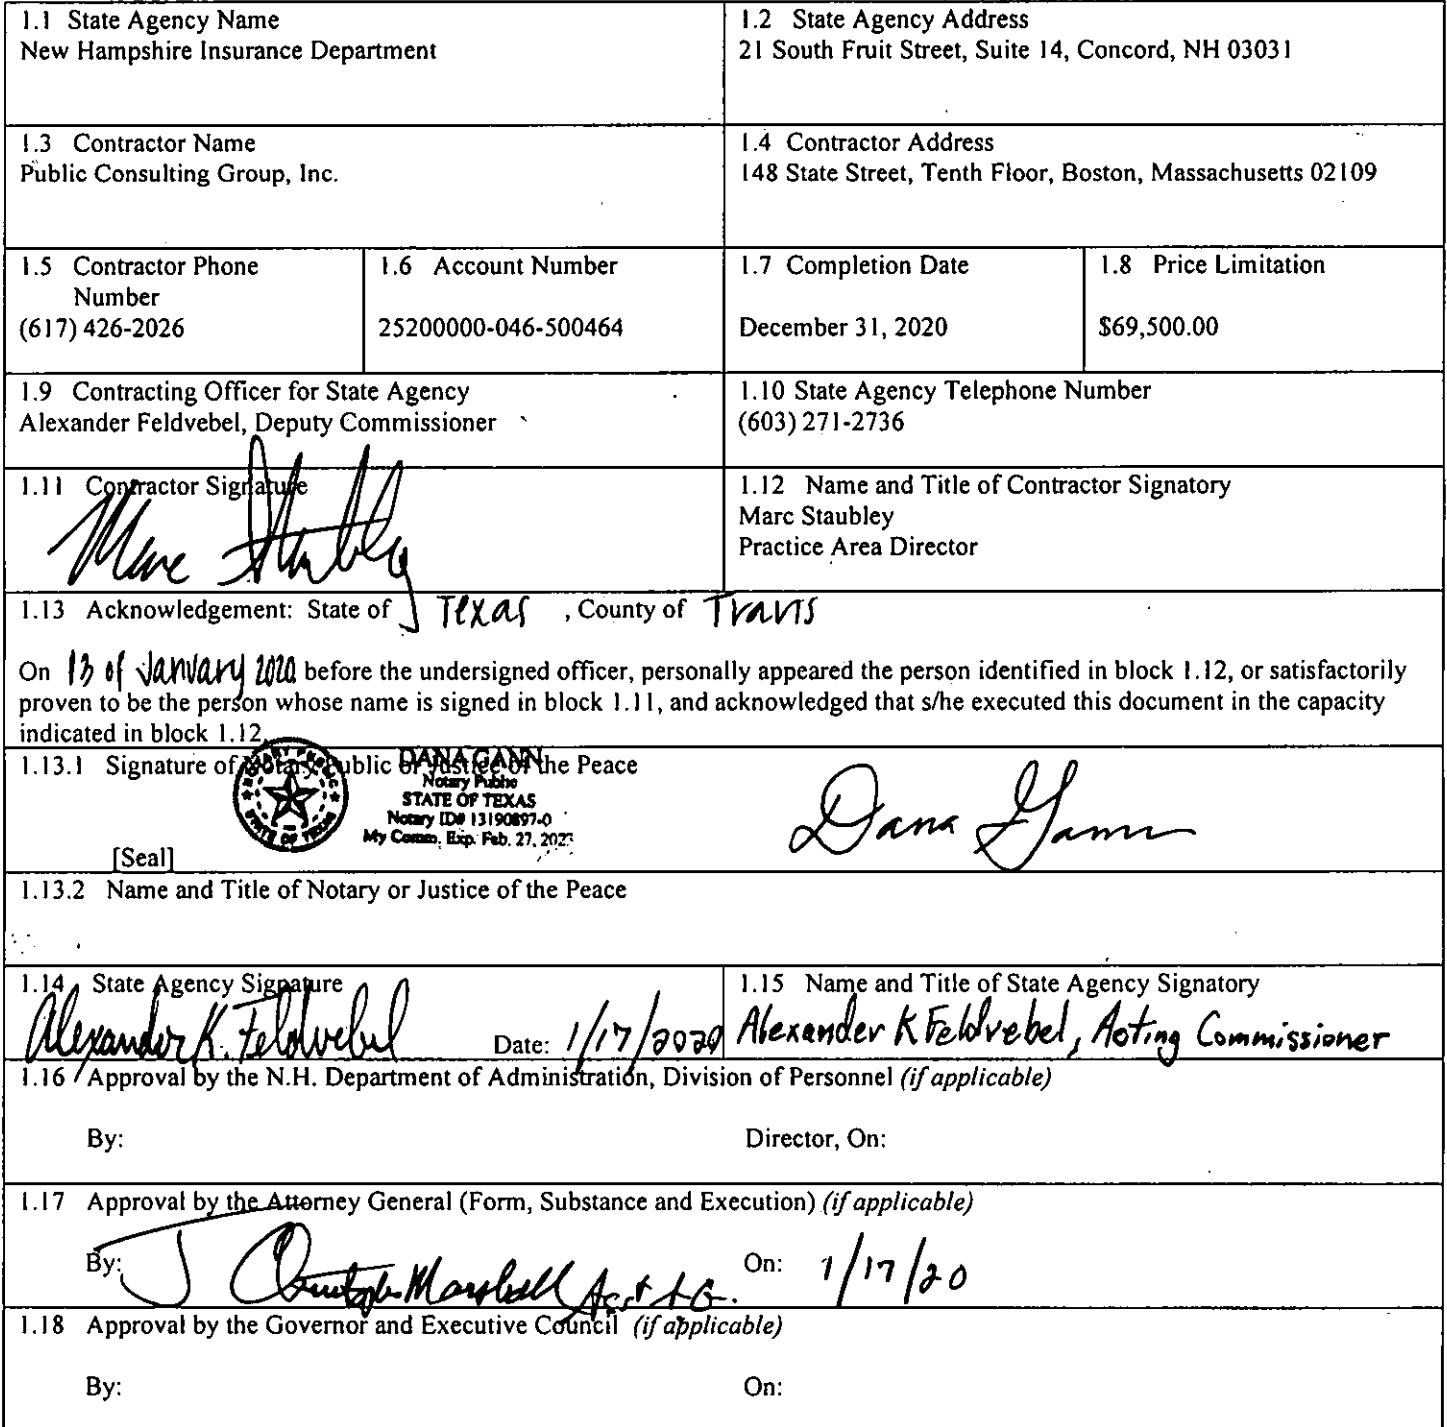 1.1 State Agency Name
New Hampshire Insurance Department
1.2 State Agency Address
21 South Fruit Street, Suite 14, Concord, NH 03031
1.3 Contractor Name
Public Consulting Group, Inc.
1.4 Contractor Address
148 State Street, Tenth Floor, Boston, Massachusetts 02109
1.5 Contractor Phone
Number
(617) 426-2026
1.6 Account Number
25200000-046-500464
1.7 Completion Date
December 31, 2020
1.8 Price Limitation
$69,500.00
1.9 Contracting Officer for State Agency
Alexander Feldvebel, Deputy Commissioner
1.10 State Agency Telephone Number
(603) 271-2736
1.11 Contractor Signature
Marc Staubley
1.12 Name and Title of Contractor Signatory
Marc Staubley
Practice Area Director
1.13 Acknowledgement: State of Texas , County of Travis
On 13 of January 2020 before the undersigned officer, personally appeared the person identified in block 1.12, or satisfactorily
proven to be the person whose name is signed in block 1.11, and acknowledged that s/he executed this document in the capacity
indicated in block 1.12.
1.13.1 Signature of Notary Public or Justice of the Peace
NOTARY PUBLIC
STATE OF TEXAS
DANA GANN
Notary Public
STATE OF TEXAS
Notary ID# 13190897-0
My Comm. Exp. Feb. 27, 2023
Dana Gann
[Seal]
1.13.2 Name and Title of Notary or Justice of the Peace
1.14 State Agency Signature
Alexander K. Feldvebel Date: 1/17/2020
1.15 Name and Title of State Agency Signatory
Alexander K Feldvebel, Acting Commissioner
1.16 Approval by the N.H. Department of Administration, Division of Personnel (if applicable)
By: Director, On:
1.17 Approval by the Attorney General (Form, Substance and Execution) (if applicable)
By: J Christopher Marshall Asst A.G. On: 1/17/20
1.18 Approval by the Governor and Executive Council (if applicable)
By: On: